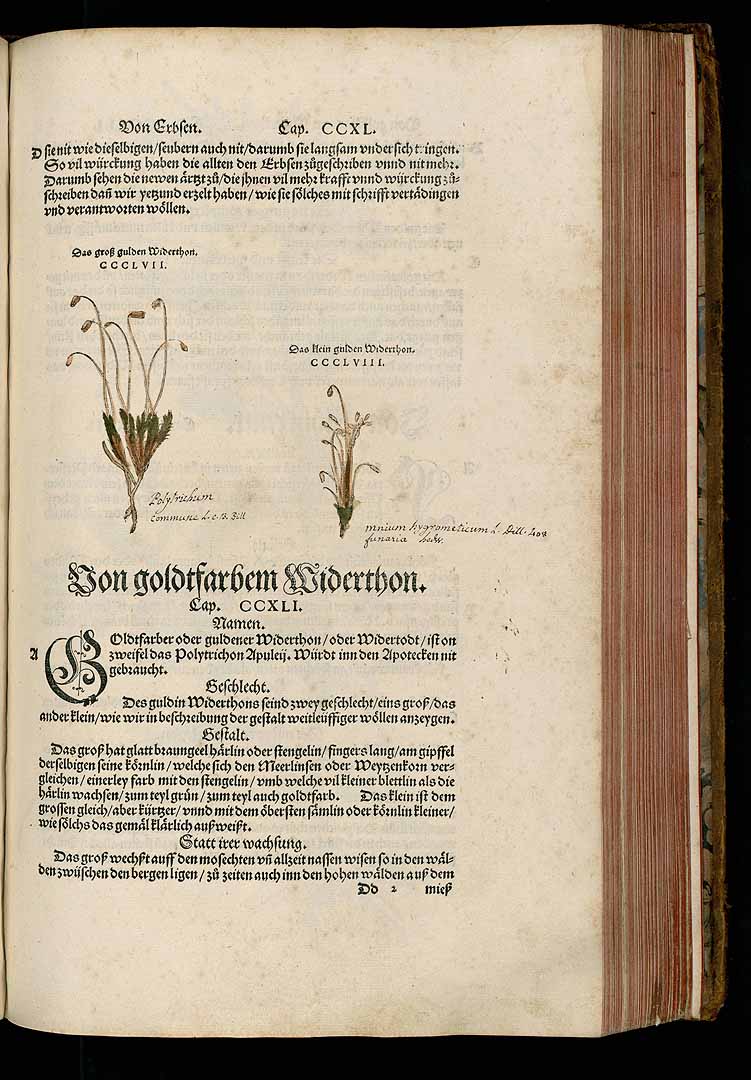 Von Erbsen. Cap. CCXL.
D sie nit wie dieselbigen/seubern auch nit/darumb sie langsam vnder sich tringen.
So vil würckung haben die allten den Erbsen zůgeschriben vnnd nit mehr.
Darumb sehen die newen ärtzt zů/die jhnen vil mehr krafft vnnd würckung zů-
schreiben dañ wir yetzund erzelt haben/wie sie sölches mit schrifft vertädingen
vnd verantworten wöllen.
Das groß gulden Widerthon.
CCCLVII.
Das klein gulden Widerthon.
CCCLVIII.
Polytrichum
commune L. c. B. Dill
mnium hygrometicum L. Dill. 408
funaria hedw.
Von goldtfarbem Widerthon.
Cap. CCXLI.
Namen.
A GOldtfarber oder guldener Widerthon/oder Widertodt/ist on
zweifel das Polytrichon Apuleij. Würdt inn den Apotecken nit
gebraucht.
Geschlecht.
Des guldin Widerthons seind zwey geschlecht/eins groß/das
ander klein/wie wir in beschreibung der gestalt weitleüffiger wöllen anzeygen.
Gestalt.
Das groß hat glatt braungeel härlin oder stengelin/fingers lang/am gipffel
derselbigen seine körnlin/welche sich den Meerlinsen oder Weytzenkorn ver-
gleichen/einerley farb mit den stengelin/vmb welche vil kleiner blettlin als die
härlin wachsen/zum teyl grün/zum teyl auch goldtfarb. Das klein ist dem
grossen gleich/aber kürtzer/vnnd mit dem öbersten sämlin oder körnlin kleiner/
wie sölchs das gemäl klärlich außweißt.
Statt irer wachsung.
Das groß wechßt auff den mosechten vñ allzeit nassen wisen so in den wäl-
den zwüschen den bergen ligen/zů zeiten auch inn den hohen wälden auß dem
Dd 2 mieß